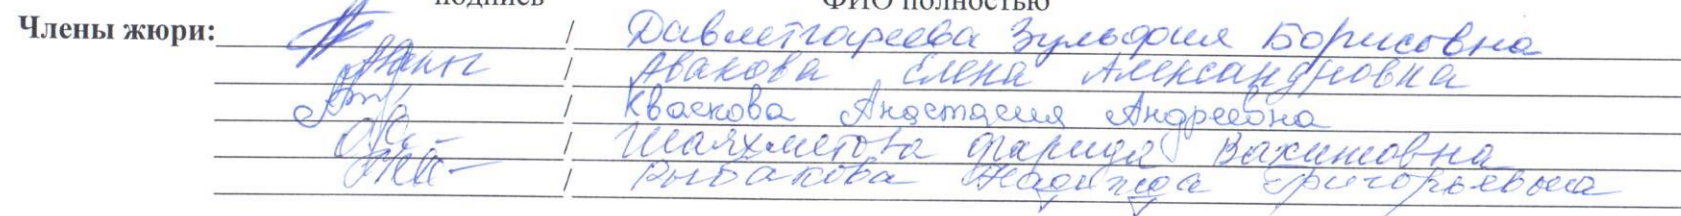 подпись ФИО полностью
Члены жюри: / Давлетгареева Зульфия Борисовна
/ Авакова Елена Александровна
/ Кваскова Анастасия Андреевна
/ Шаяхметова Фарида Вахитовна
/ Рыбакова Надежда Григорьевна